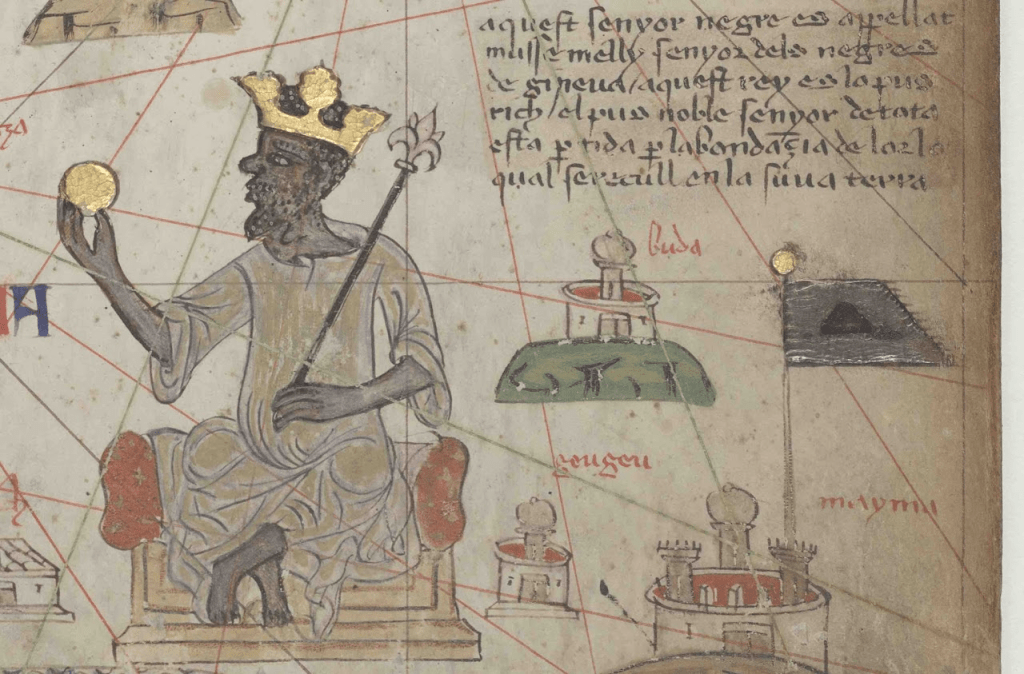 aquest senyor negre es appellat
musse melly senyor dels negres
de gineua aquest rey es lo pus
rich el pus noble senyor de tota
esta ptida p labondaçia de lor lo
qual se recull en la suua terra
buda
gougeu
mayma